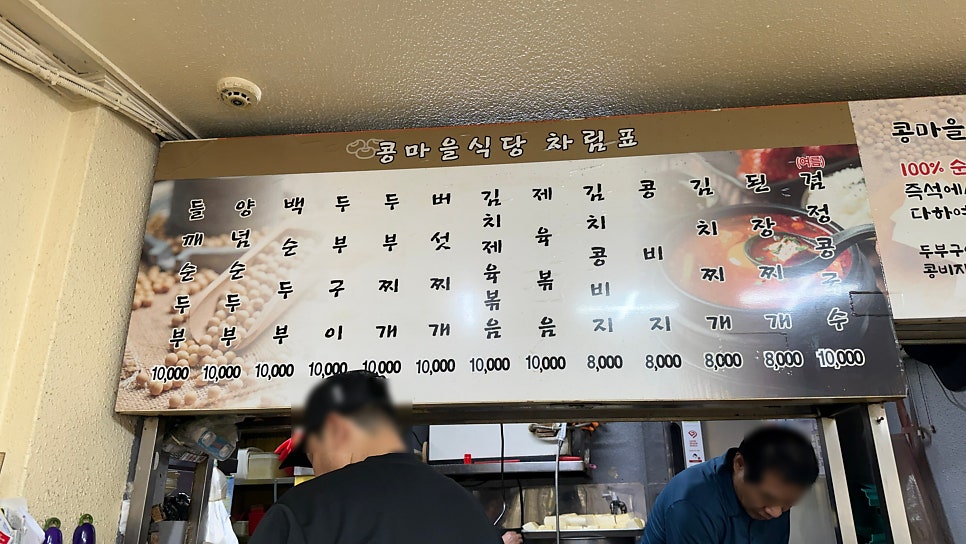 콩마을식당 차림표
들깨순두부 10,000
양념순두부 10,000
백순두부 10,000
두부구이 10,000
두부찌개 10,000
버섯찌개 10,000
김치제육볶음 10,000
제육볶음 10,000
김치콩비지 8,000
콩비지 8,000
김치찌개 8,000
된장찌개 8,000
(여름) 검정콩국수 10,000
콩마을
100% 순
즉석에
다하여
두부구
콩비지